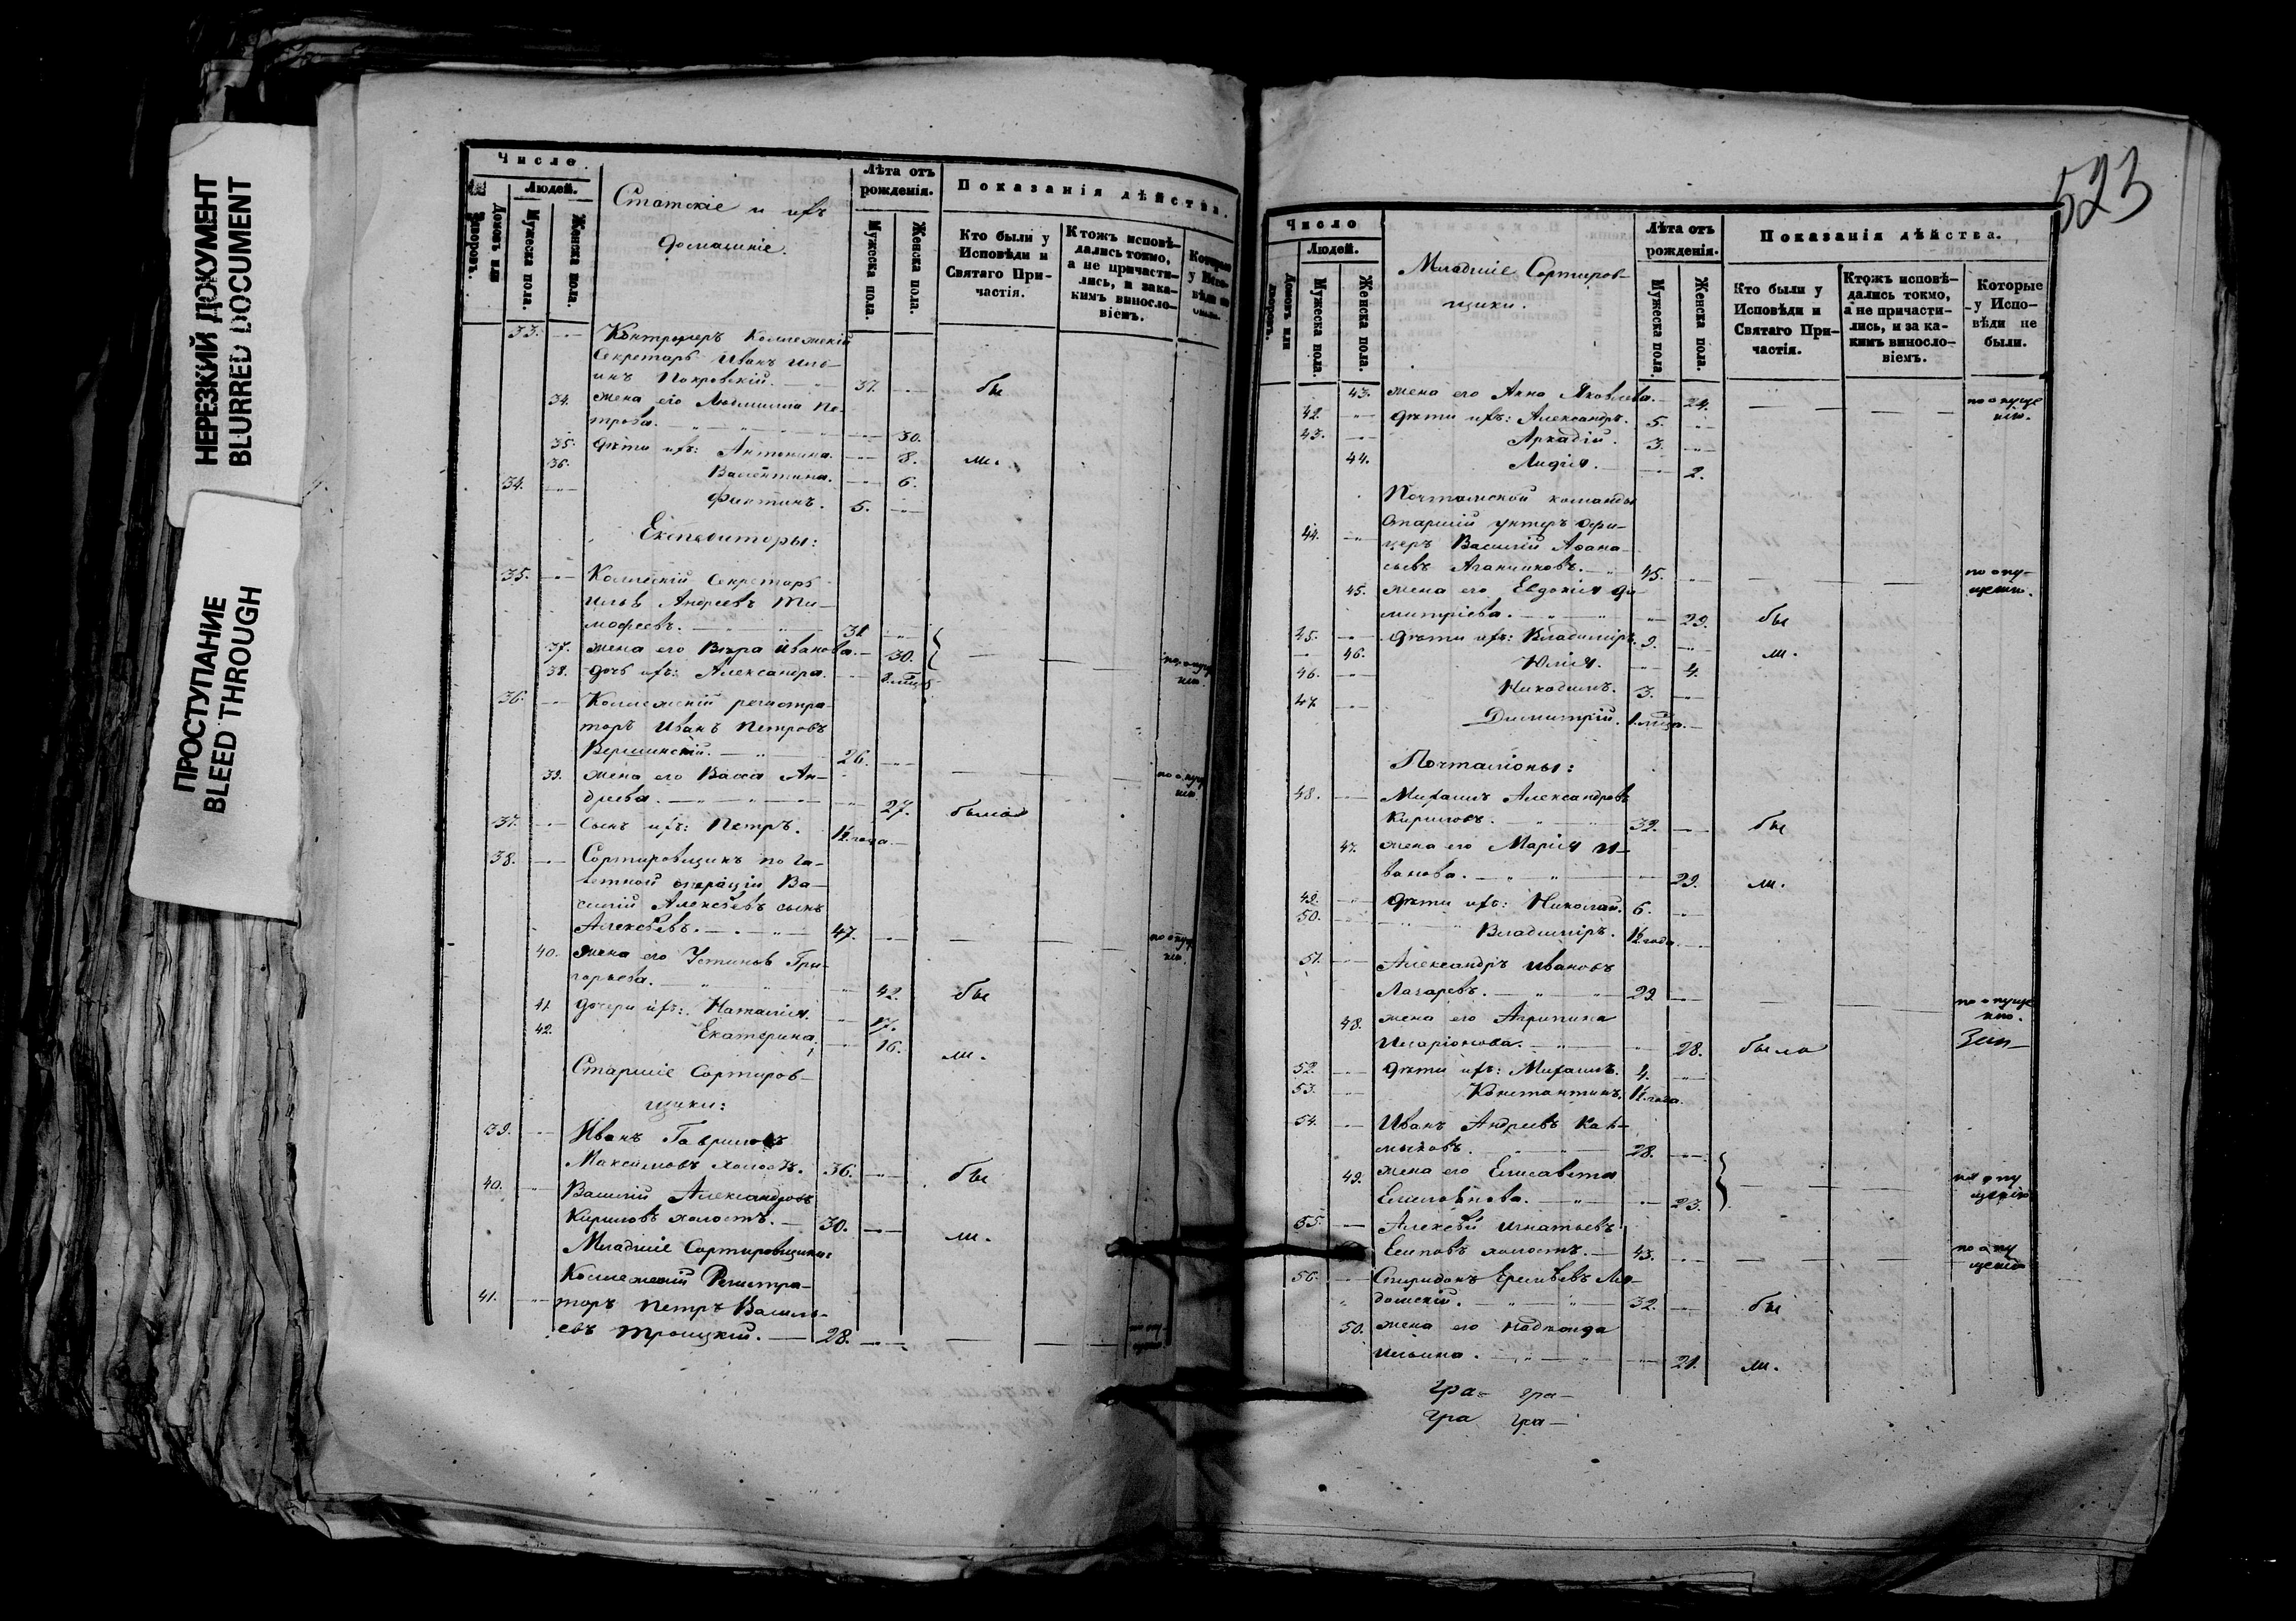 НЕРЕЗКИЙ ДОКУМЕНТ
BLURRED DOCUMENT
ПРОСТУПАНИЕ
BLEED THROUGH
Число
Людей.
Домовъ или дворовъ.
Мужеска пола.
Женска пола.
Статскіе и ихъ
домашніе.
Лѣта отъ
рожденія.
Мужеска пола.
Женска пола.
Показанія дѣйства.
Кто были у
Исповѣди и
Святаго При-
частія.
Ктожъ исповѣ-
дались токмо,
а не причасти-
лись, и за ка-
кимъ винosло-
віемъ.
Которые
у Испо-
вѣди не
были.
33. Контролеръ Коллежскій
Секретарь Иванъ Иль-
инъ Покровскій. 37. бы
34. жена его Людмилла Пе-
трова. 30.
35. дѣти ихъ: Антонина. 8. ли.
36. Валентина. 6.
34. 5.
Експедиторы:
35. Коллежскій Секретарь
Илья Андреевъ Ти-
мофеевъ. 31
37. жена его Вѣра Иванова. 30.
38. дочь ихъ: Александра. по опуще
нію.
36. Коллежскій регистра
торъ Иванъ Петровъ
Вершинскій. 26.
39. жена его Васса Ан- по опуще
нію.
дреева. 27. была
37. сынъ ихъ: Петръ. 1½ года.
38. Сортировщикъ по га-
зетной операціи Ва-
силій Алексѣевъ сынъ
Алексѣевъ. 47. по опуще
нію.
40. жена его Устинья Гри-
горьева. 42. бы
41. дочери ихъ: Наталія. 17.
42. Екатерина. 16. ли.
Старшіе Сортиров-
щики:
39. Иванъ Гавриловъ
Максимовъ холостъ. 36. бы
40. Василій Александровъ
Кириловъ холостъ. 30. ли.
Младшіе Сортировщики:
Коллежскій Регистра-
41. торъ Петръ Василь-
евъ Троицкій. 28.
523
Число
Людей.
Домовъ или дворовъ.
Мужеска пола.
Женска пола.
Младшіе Сортиров-
щики.
Лѣта отъ
рожденія.
Мужеска пола.
Женска пола.
Показанія дѣйства.
Кто были у
Исповѣди и
Святаго При-
частія.
Ктожъ исповѣ-
дались токмо,
а не причасти-
лись, и за ка-
кимъ винosло-
віемъ.
Которые
у Испо-
вѣди не
были.
43. жена его Анна Яковлева. 24. по опуще
нію.
42. дѣти ихъ: Александръ. 5.
43. Аркадій. 3.
44. Лидія. 2.
Почтамской команды
Старшій унтеръ офи-
44. церъ Василій Афана-
сьевъ 45. по опу-
щенію.
45. жена его Евдокія Ди-
митріева. 29. бы
45. дѣти ихъ: Владиміръ. 9.
46. Юлія. 4. ли.
46. Никодимъ. 3.
47. Димитрій.
Почталіоны:
48. Михаилъ Александровъ
Кириловъ. 32. бы
47. жена его Марія И-
ванова. 29. ли.
49. дѣти ихъ: Николай. 6.
50. Владиміръ. 1½ года.
51. Александръ Ивановъ
Лазаревъ. 29. по опуще
нію.
48. жена его Агрипина
Иларіонова. 28. была
52. дѣти ихъ: Михаилъ. 4.
53. Константинъ. 1½ года.
54. Иванъ Андреевъ Кал-
мыковъ. 28.
49. жена его Елисавета по опу
щенію
23.
55. Алексѣй Игнатьевъ
Есиповъ холостъ. 43. по опу
щенію
56. Спиридонъ
32. бы
50. жена его Надежда
Ильина. 21. ли.